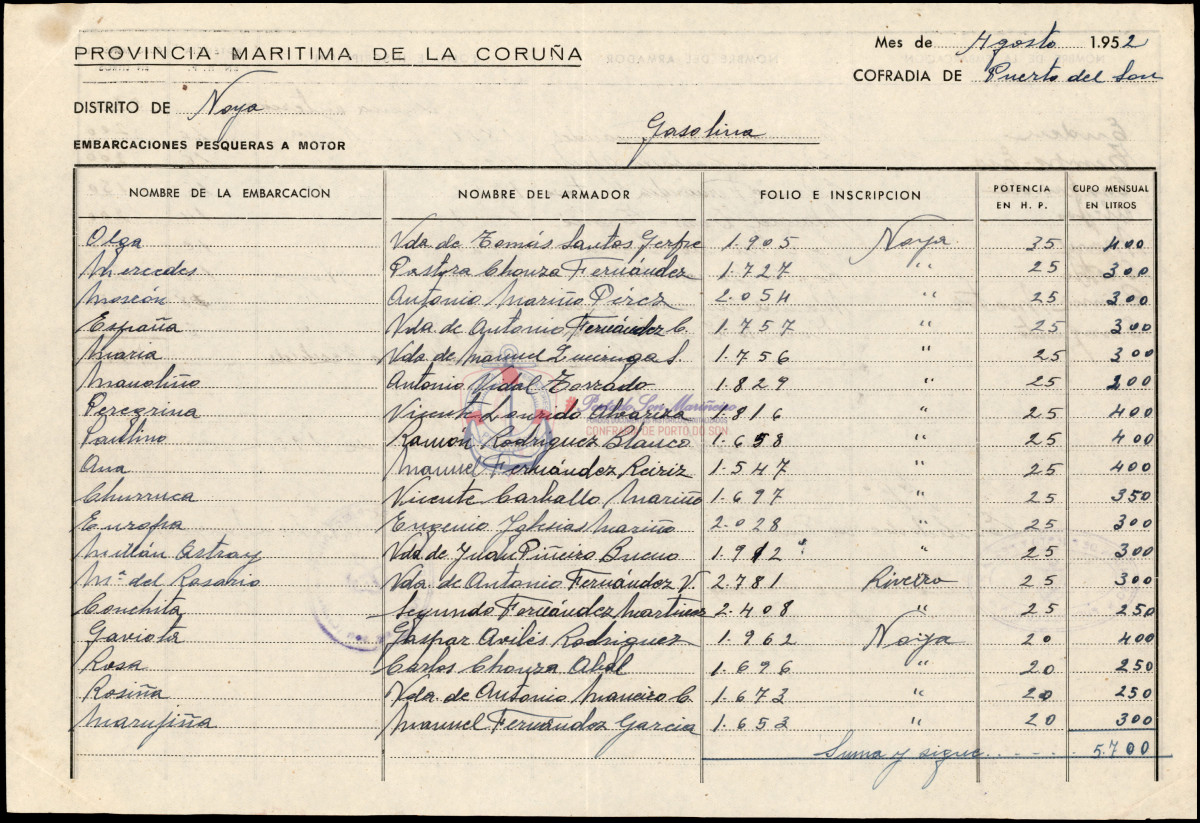 PROVINCIA MARITIMA DE LA CORUÑA
Mes de Agosto 1.952
COFRADIA DE Puerto del Son
DISTRITO DE Noya
Gasolina
EMBARCACIONES PESQUERAS A MOTOR
NOMBRE DE LA EMBARCACION NOMBRE DEL ARMADOR FOLIO E INSCRIPCION POTENCIA EN H. P. CUPO MENSUAL EN LITROS
Olga Vda. de Tomás Santos 1.905 Noya 35 400
Mercedes Pastora Chouza Fernández 1.727 " 25 300
Moscón Antonio Mariño Pérez 2.054 " 25 300
España Vda. de Antonio Fernández C. 1.757 " 25 300
Maria Vda. de Manuel Quiruga S. 1.756 " 25 300
Manoliño Antonio Vidal Torrado 1.829 " 25 200
Peregrina Vicente Lourido Alvariza 1.816 " 25 400
Paulino Ramón Rodriguez Blanco 1.658 " 25 400
Ana Manuel Fernández Reiriz 1.547 " 25 400
Churruca Vicente Carballo Mariño 1.697 " 25 350
Europa Eugenio Yglesias Mariño 2.028 " 25 300
Millán Astray Vda. de Juan Piñeiro Bueno 1.912 " 25 300
Mª del Rosario Vda. de Antonio Fernández V. 2.781 Riveira 25 300
Conchita Segundo Fernández Martinez 2.408 " 25 250
Gaviota Gaspar Avilés Rodriguez 1.962 Noya 20 400
Rosa Carlos Chouza Abal 1.696 " 20 250
Rosiña Vda. de Antonio Maneiro C. 1.673 " 20 250
Marujiña Manuel Fernández Garcia 1.653 " 20 300
Suma y sigue 5.700
Porto do Son Mariñeiro
CONFRARÍA DE PORTO DO SON